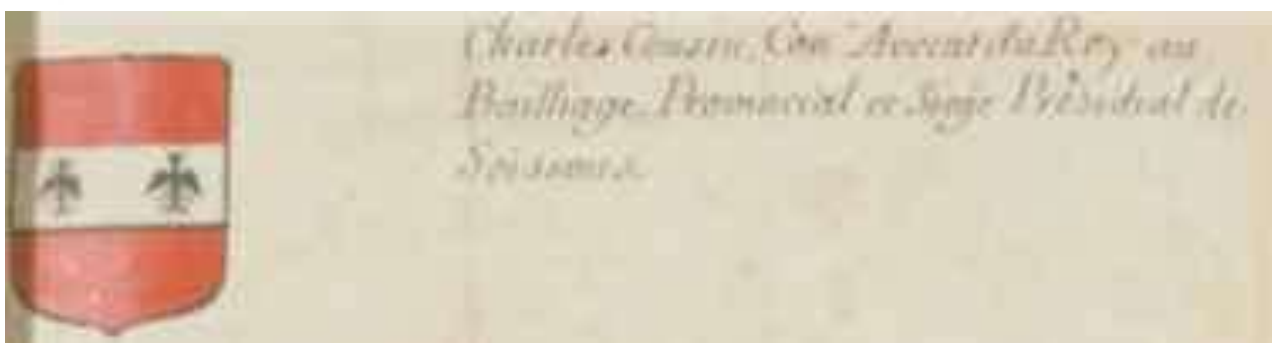 Charles Cousin, Con.er Avocat du Roy au
Bailliage, Provincial et Siege Présidial de
Soissons.